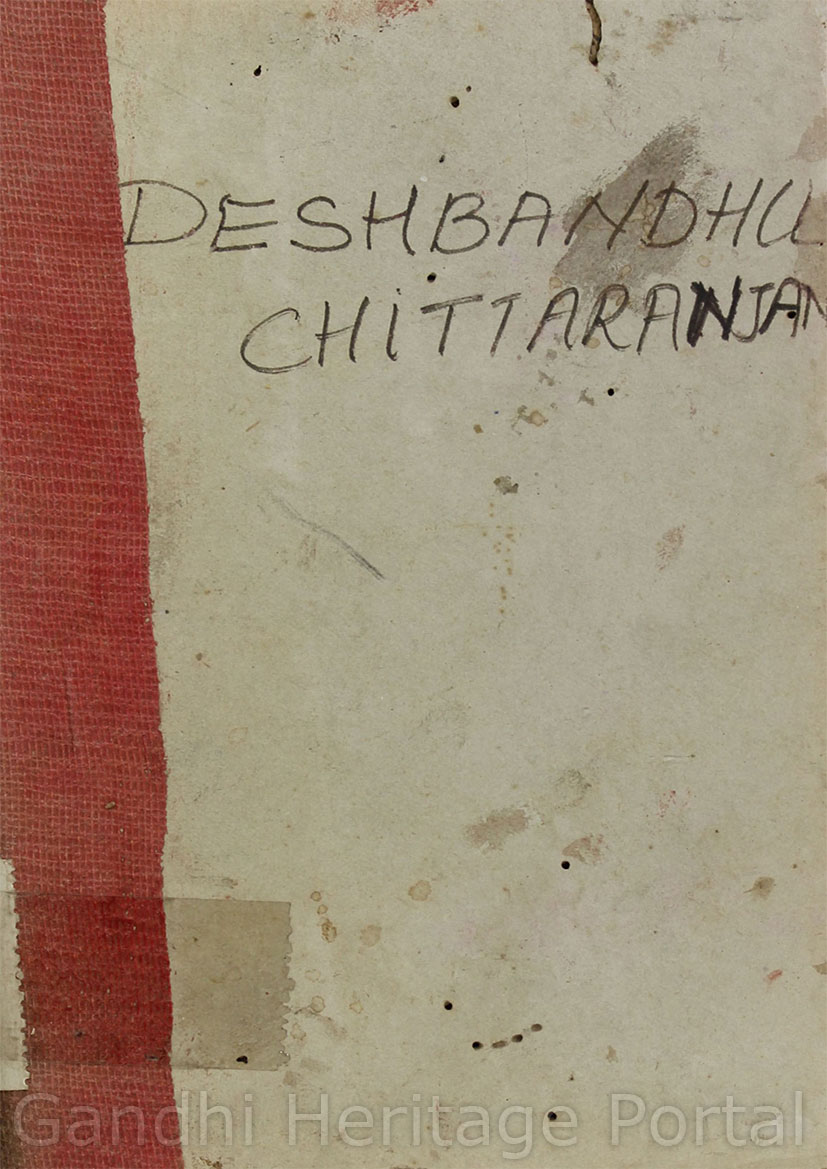 DESHBANDHU
CHITTARANJAN
Gandhi Heritage Portal